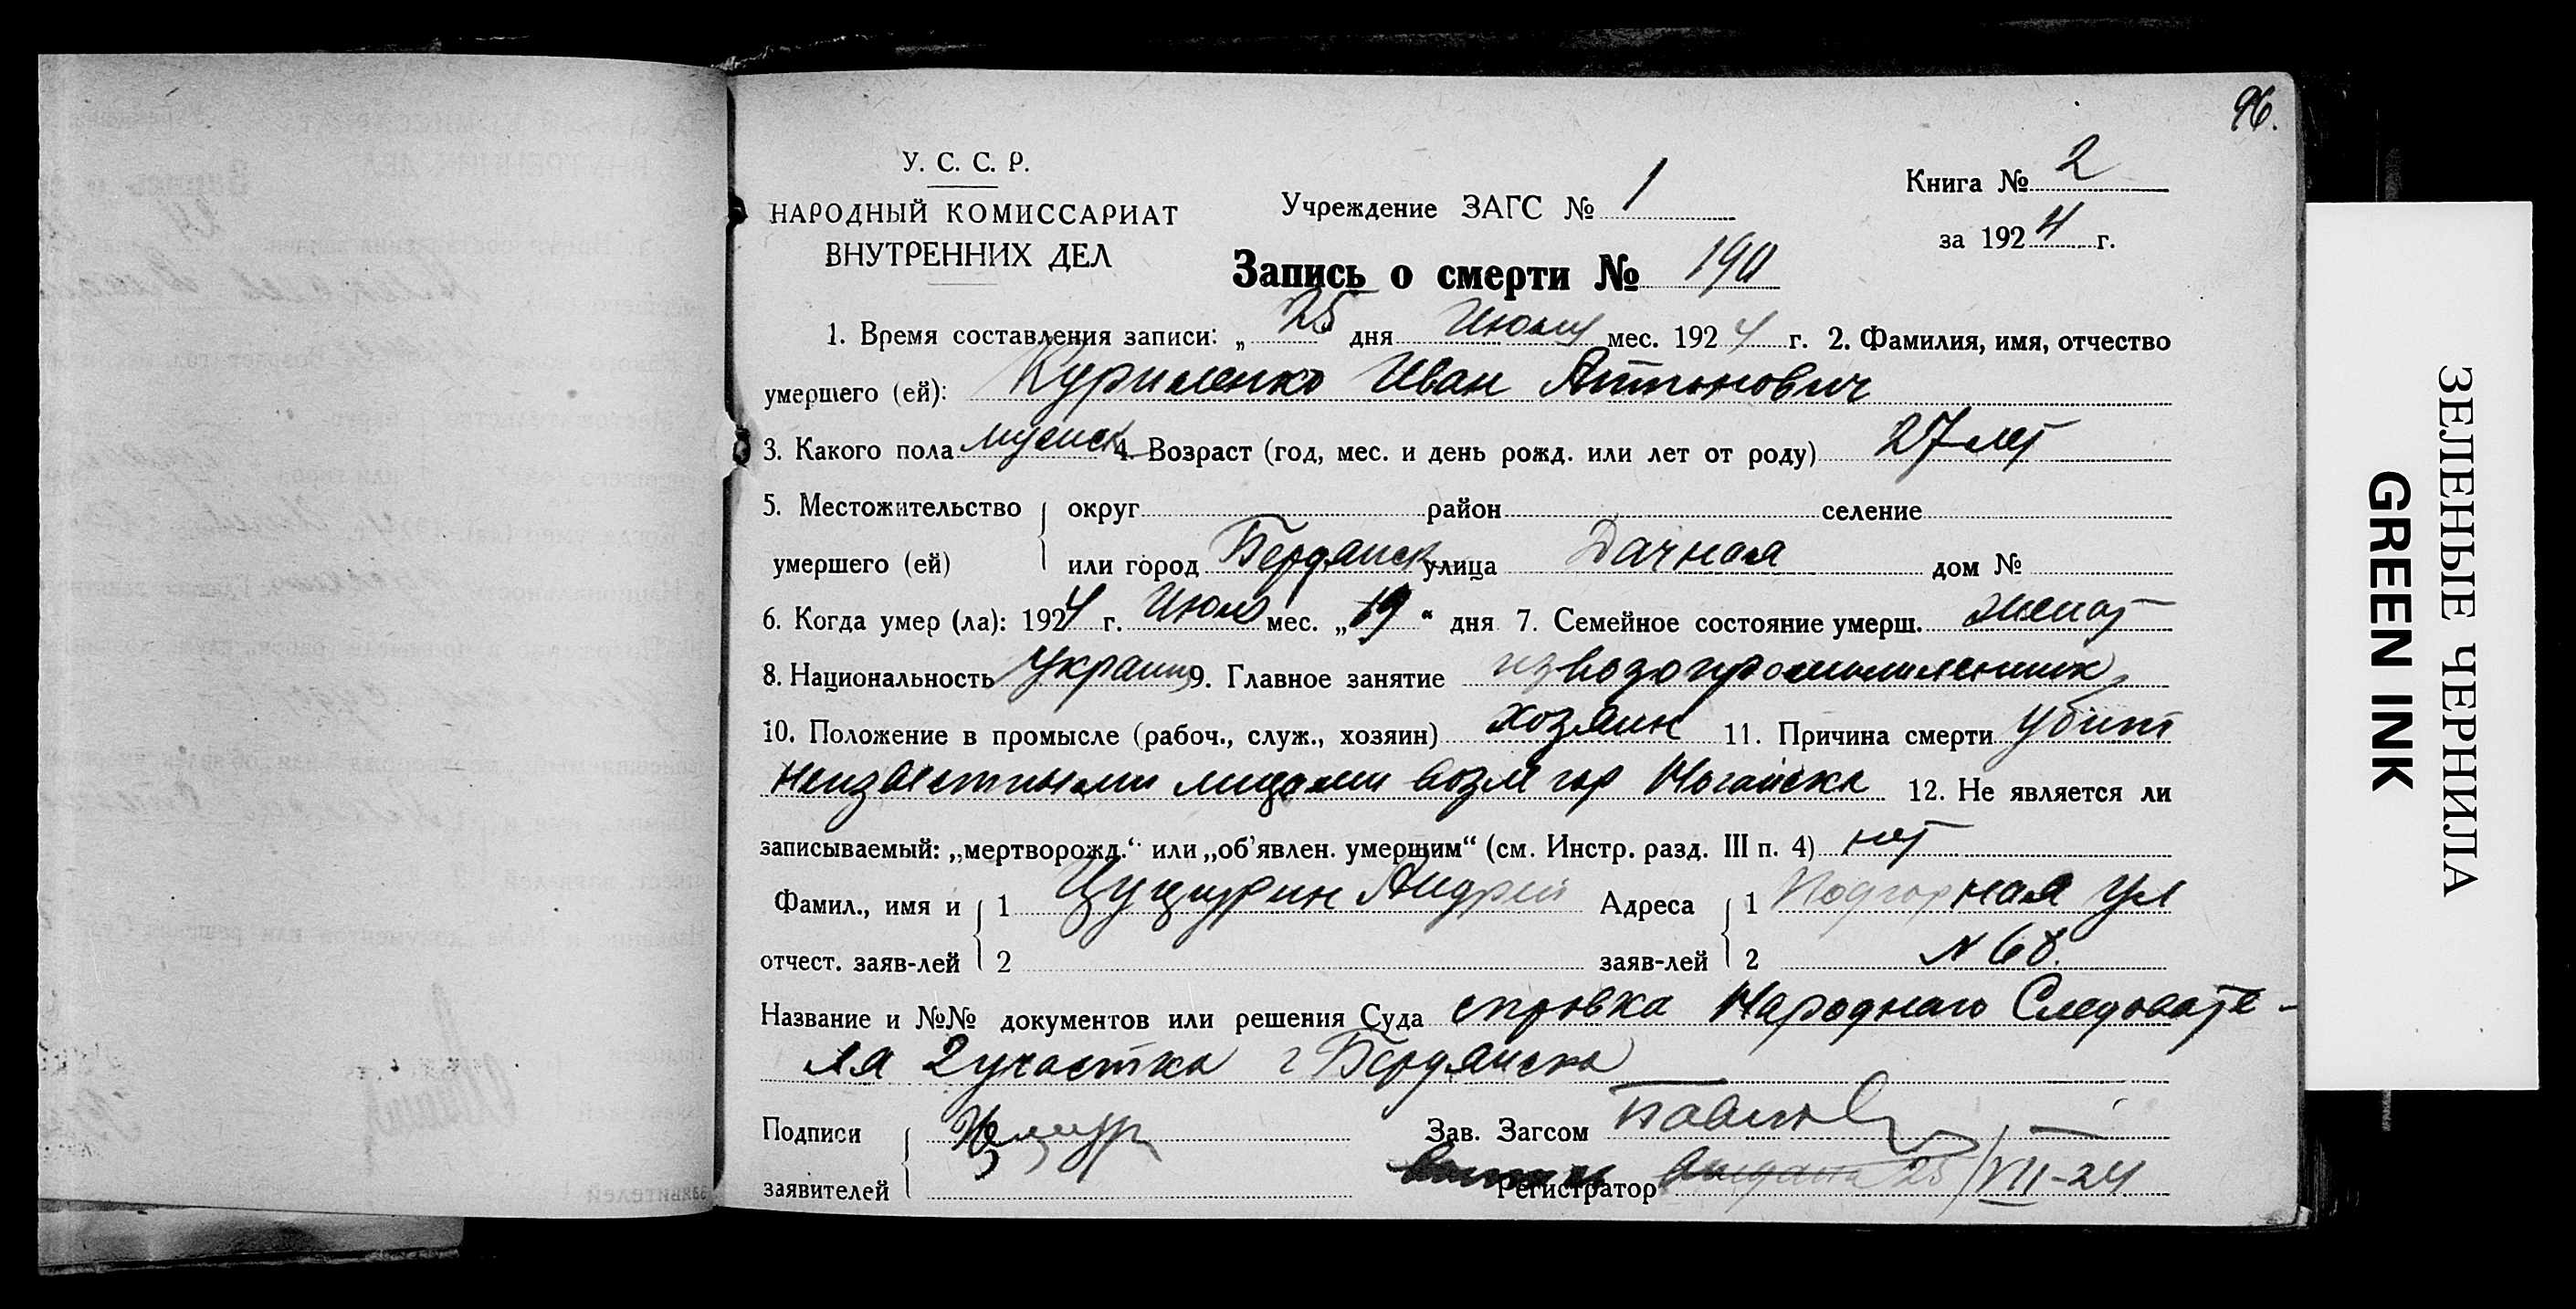 96.
У. С. С. Р.
НАРОДНЫЙ КОМИССАРИАТ
ВНУТРЕННИХ ДЕЛ
Учреждение ЗАГС № 1
Книга № 2
за 1924 г.
Запись о смерти № 190
1. Время составления записи: „ 25 дня Июля мес. 1924 г. 2. Фамилия, имя, отчество
умершего (ей): Куриленко Иван Антонович
3. Какого пола мужск 4. Возраст (год, мес. и день рожд. или лет от роду) 27 лет
5. Местожительство округ район селение
умершего (ей) или город Бердянск улица Дачная дом №
6. Когда умер (ла): 1924 г. Июля мес. „19“ дня 7. Семейное состояние умерш. женат
8. Национальность Украин 9. Главное занятие извозопромышленник
10. Положение в промысле (рабоч., служ., хозяин) хозяин 11. Причина смерти убит
неизвестными лицами возле гор Ногайска 12. Не является ли
записываемый: „мертворожд.“ или „об’явлен. умершим“ (см. Инстр. разд. III п. 4) нет
Фамил., имя и 1 Цуцурин Андрей Адреса 1 Подгорная ул
отчест. заяв-лей 2 заяв-лей 2 N 68.
Название и №№ документов или решения Суда справка Народнаго Следовате-
ля 2 участка г Бердянска
Подписи Зав. Загсом
заявителей Регистратор выдана 25/VII-24
ЗЕЛЕНЫЕ ЧЕРНИЛА
GREEN INK